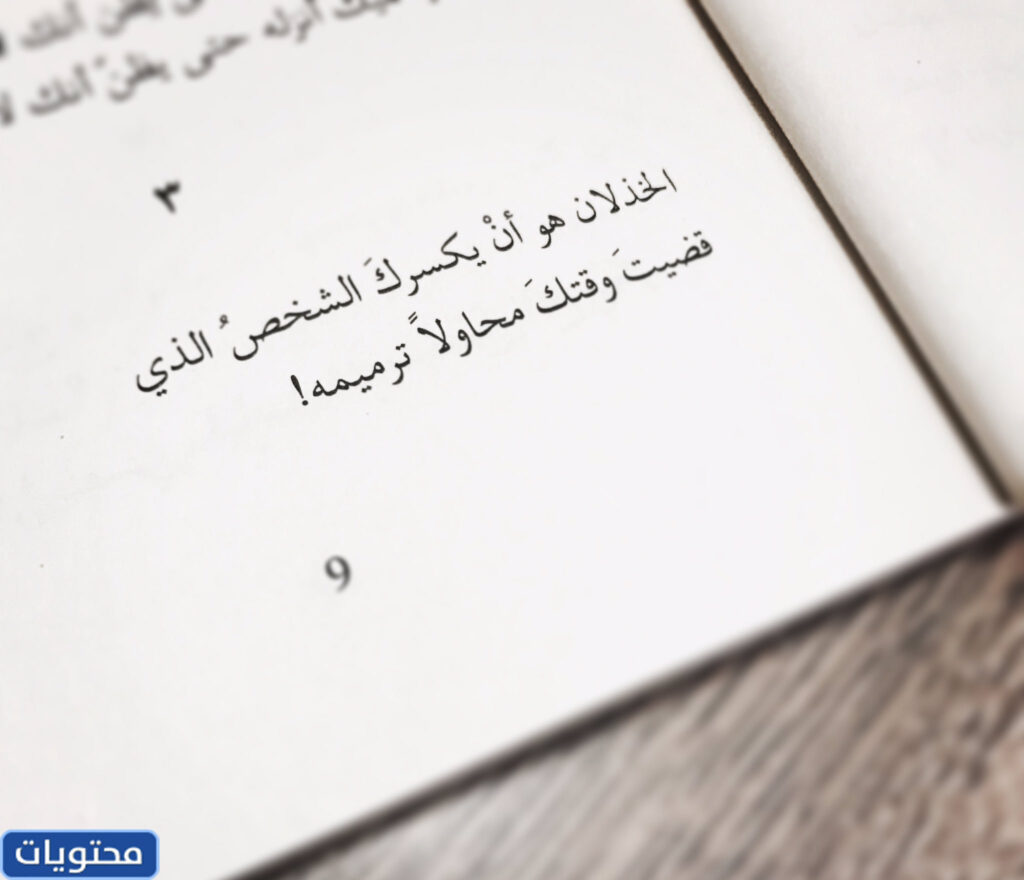 يظن أنك
أنزله حتى يظنّ أنك لا
٣
الخذلان هو أنْ يكسركَ الشخصُ الذي
قضيتَ وقتكَ محاولاً ترميمه!
9
محتويات